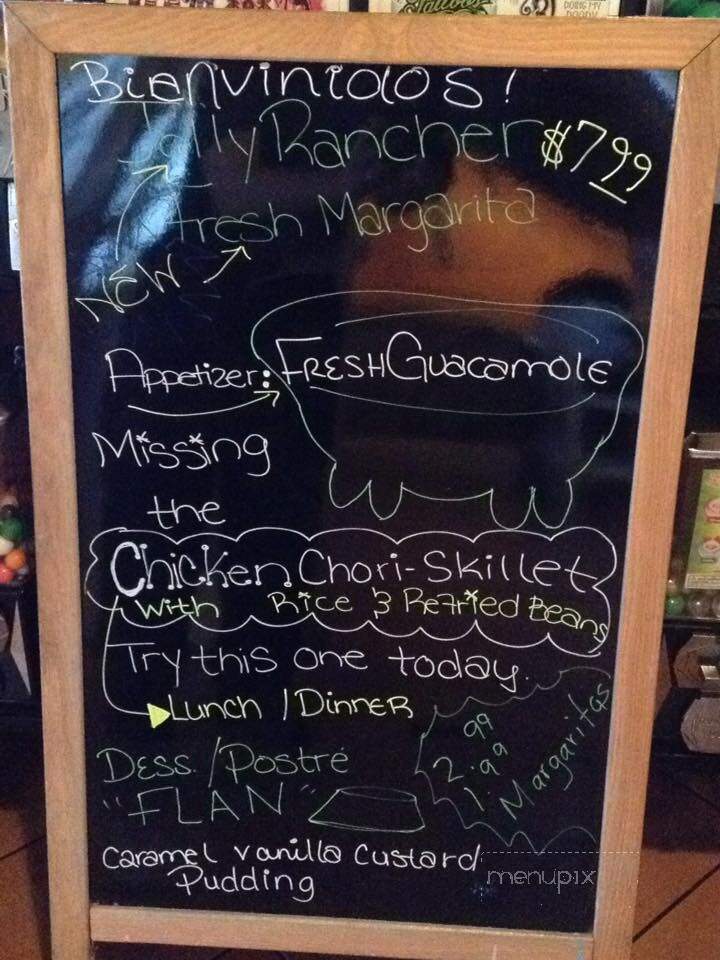 Tattoos
DOING MY
Bienvinidos!
Jolly Rancher $7.99
Fresh Margarita
NEW
Appetizer: FRESH Guacamole
Missing
the
Chicken Chori-Skillet
With Rice & Refried Beans
Try this one today.
Lunch / Dinner
Dess. / Postré
"FLAN"
.99
2.99
1.
Margaritas
Caramel Vanilla Custard
Pudding
menupix